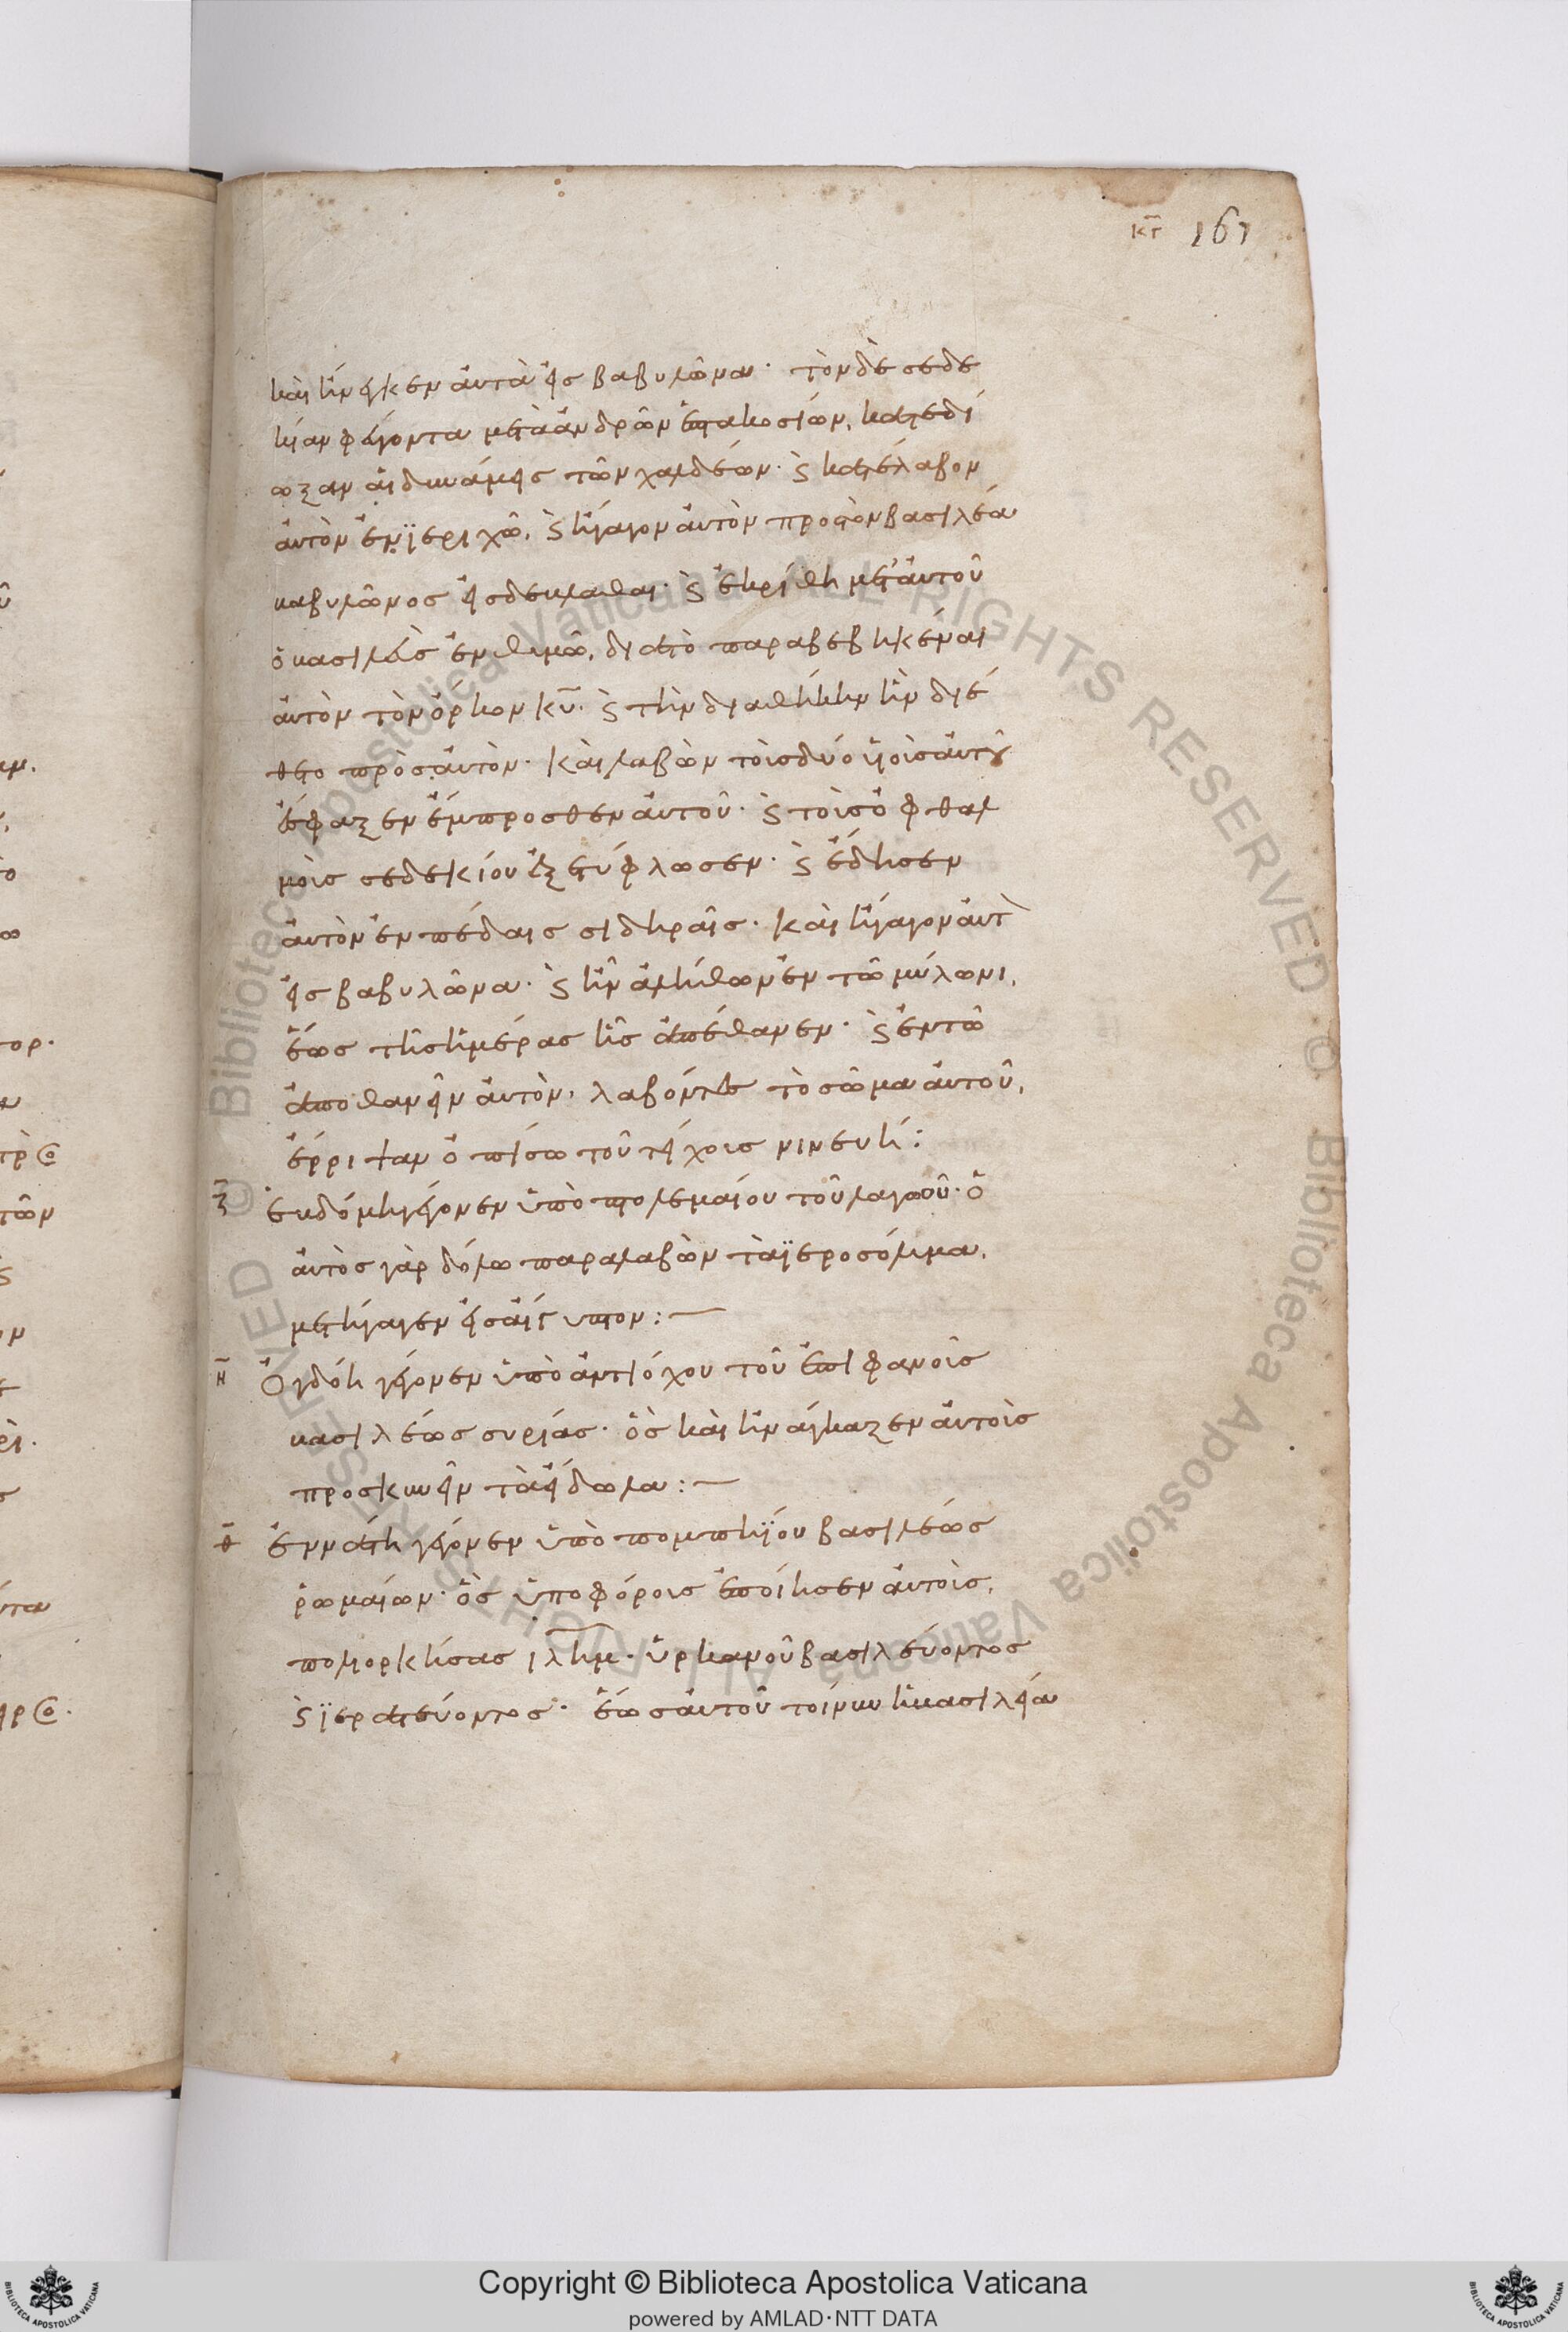 κγ 161
καὶ ἤνεγκεν αὐτὰ εἰς βαβυλῶνα· τὸν δὲ σεδε
κίαν φεύγοντα μετὰ ἀνδρῶν ἑπτακοσίων, κατεδί
ωξαν αἱ δυνάμεις τῶν χαλδέων· ϗ κατέλαβον
αὐτὸν ἐν ϊεριχῶ, ϗ ἤγαγον αὐτὸν προς τὸν βασιλέα
βαβυλῶνος εἰς δεβλαθαι· ϗ ἐκρίθη μετ' αὐτοῦ
ὁ βασιλεὺς ἐν θυμῶ, διατὸ παραβεβηκέναι
αὐτὸν τὸν ὅρκον κυ̅· ϗ τὴν διαθήκην ἣν διέ
θετο πρὸς αὐτὸν· καὶ λαβὼν τοὺς δύο υἱοὺς αὐτοῦ
ἔσφαξεν ἔμπροσθεν αὐτοῦ· ϗ τοὺς ὀφθαλ
μοὺς σεδεκίου ἐξετύφλωσεν· ϗ ἔδησεν
αὐτὸν ἐν πέδαις σιδηραῖς· καὶ ἤγαγον αὐτὸν
εἰς βαβυλῶνα· ϗ ἦν ἀλήθων ἐν τῶ μύλωνι,
ἕως τῆς ἡμέρας ἧς ἀπέθανεν· ϗ ἐν τῶ
ἀποθανεῖν αὐτὸν, λαβόντες τὸ σῶμα αὐτοῦ,
ἔρριψαν ὀπίσω τοῦ τείχους νινευή:
ζ̅ ἑβδόμη γέγονεν ὑπὸ πτολεμαίου τοῦ λαγωοῦ· ὁ
αὐτὸς γὰρ δόλω παραλαβὼν τὰ ϊεροσόλυμα,
μετήγαγεν εἰς αἴγυπτον:
η̅ Ὀγδόη γέγονεν ὑπὸ ἀντιόχου τοῦ ἐπιφανοῦς
βασιλέως συρίας· ὃς καὶ ἠνάγκαζεν αὐτοὺς
προσκυνεῖν τὰ εἴδωλα:
θ̅ ἐννάτη γέγονεν ὑπὸ πομπηΐου βασιλέως
ῥωμαίων· ὃς ὑποφόρους ἐποίησεν αὐτοὺς,
πολιορκήσας ιλημ· ὑρκανοῦ βασιλεύοντος
ϗ ϊερατεύοντος· ἕως αὐτοῦ τοίνυν ἡ βασιλεία
Copyright © Biblioteca Apostolica Vaticana
powered by AMLAD·NTT DATA